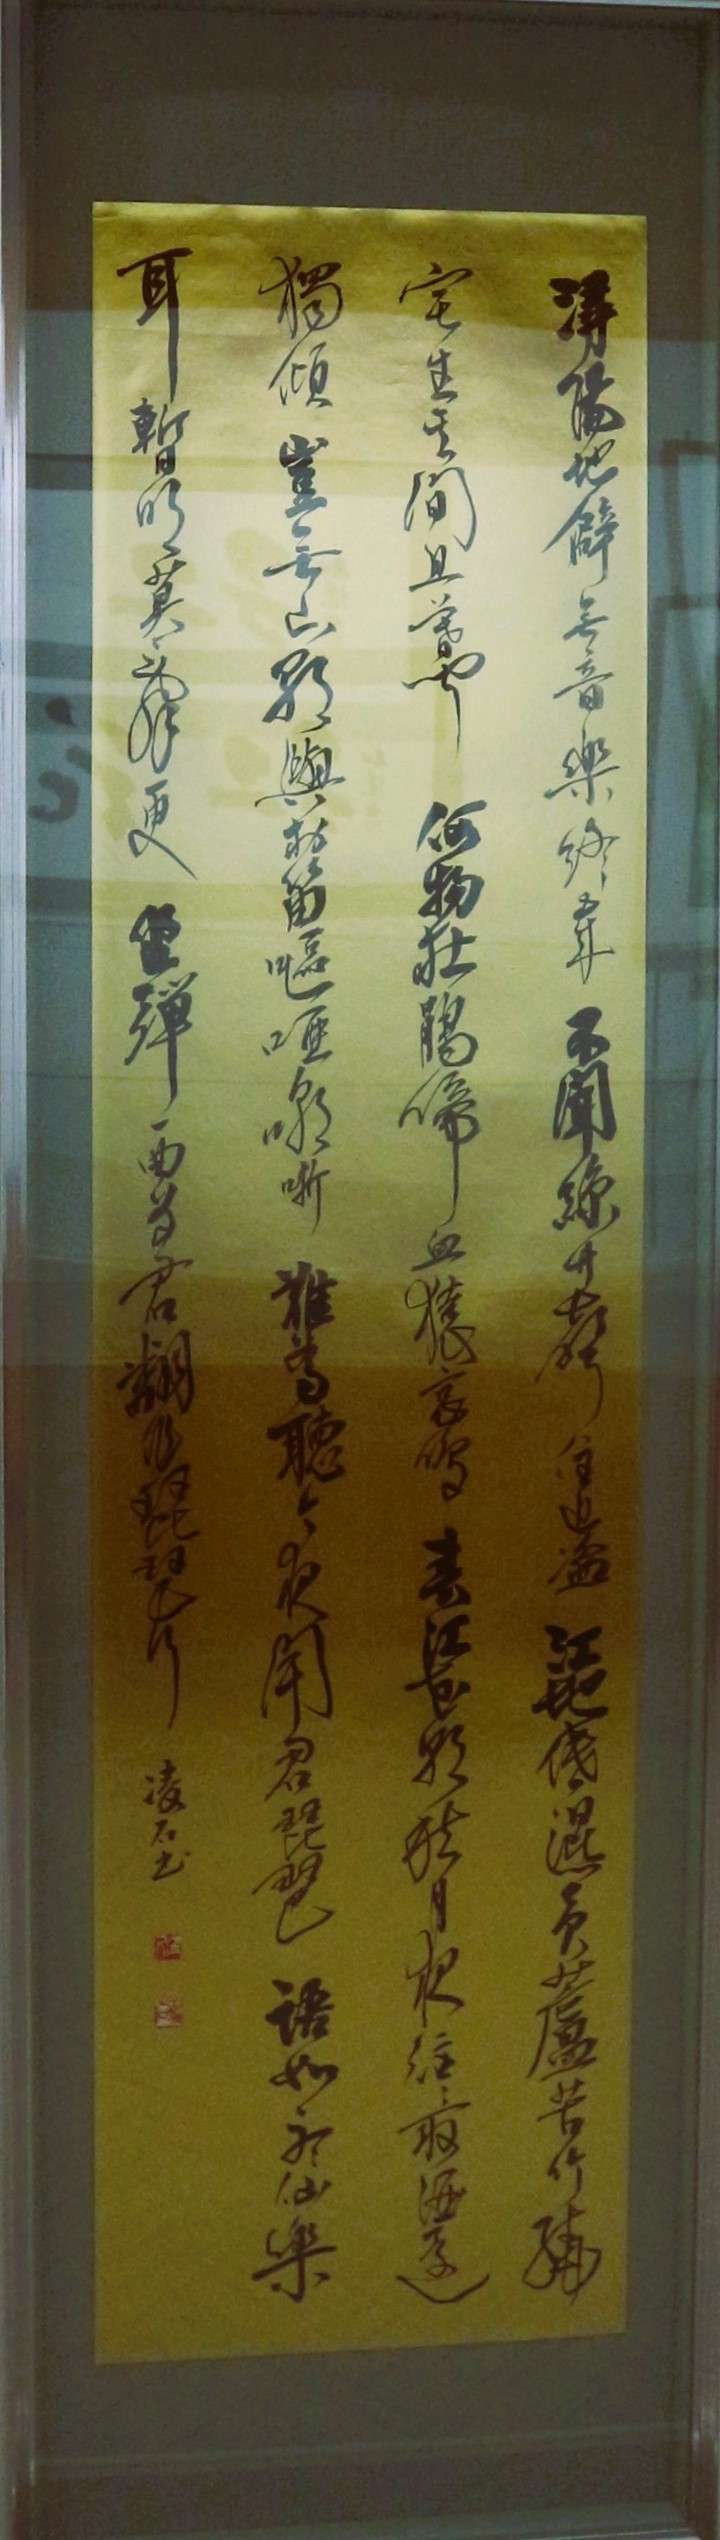 潯陽地僻無音樂終歲不聞絲竹聲住近湓江地低濕黃蘆苦竹繞
宅生其間旦暮聞何物杜鵑啼血猿哀鳴春江花朝秋月夜往往取酒還
獨傾豈無山歌與村笛嘔啞嘲哳難為聽今夜聞君琵琶語如聽仙樂
耳暫明莫辭更坐彈一曲為君翻作琵琶行
凌石書